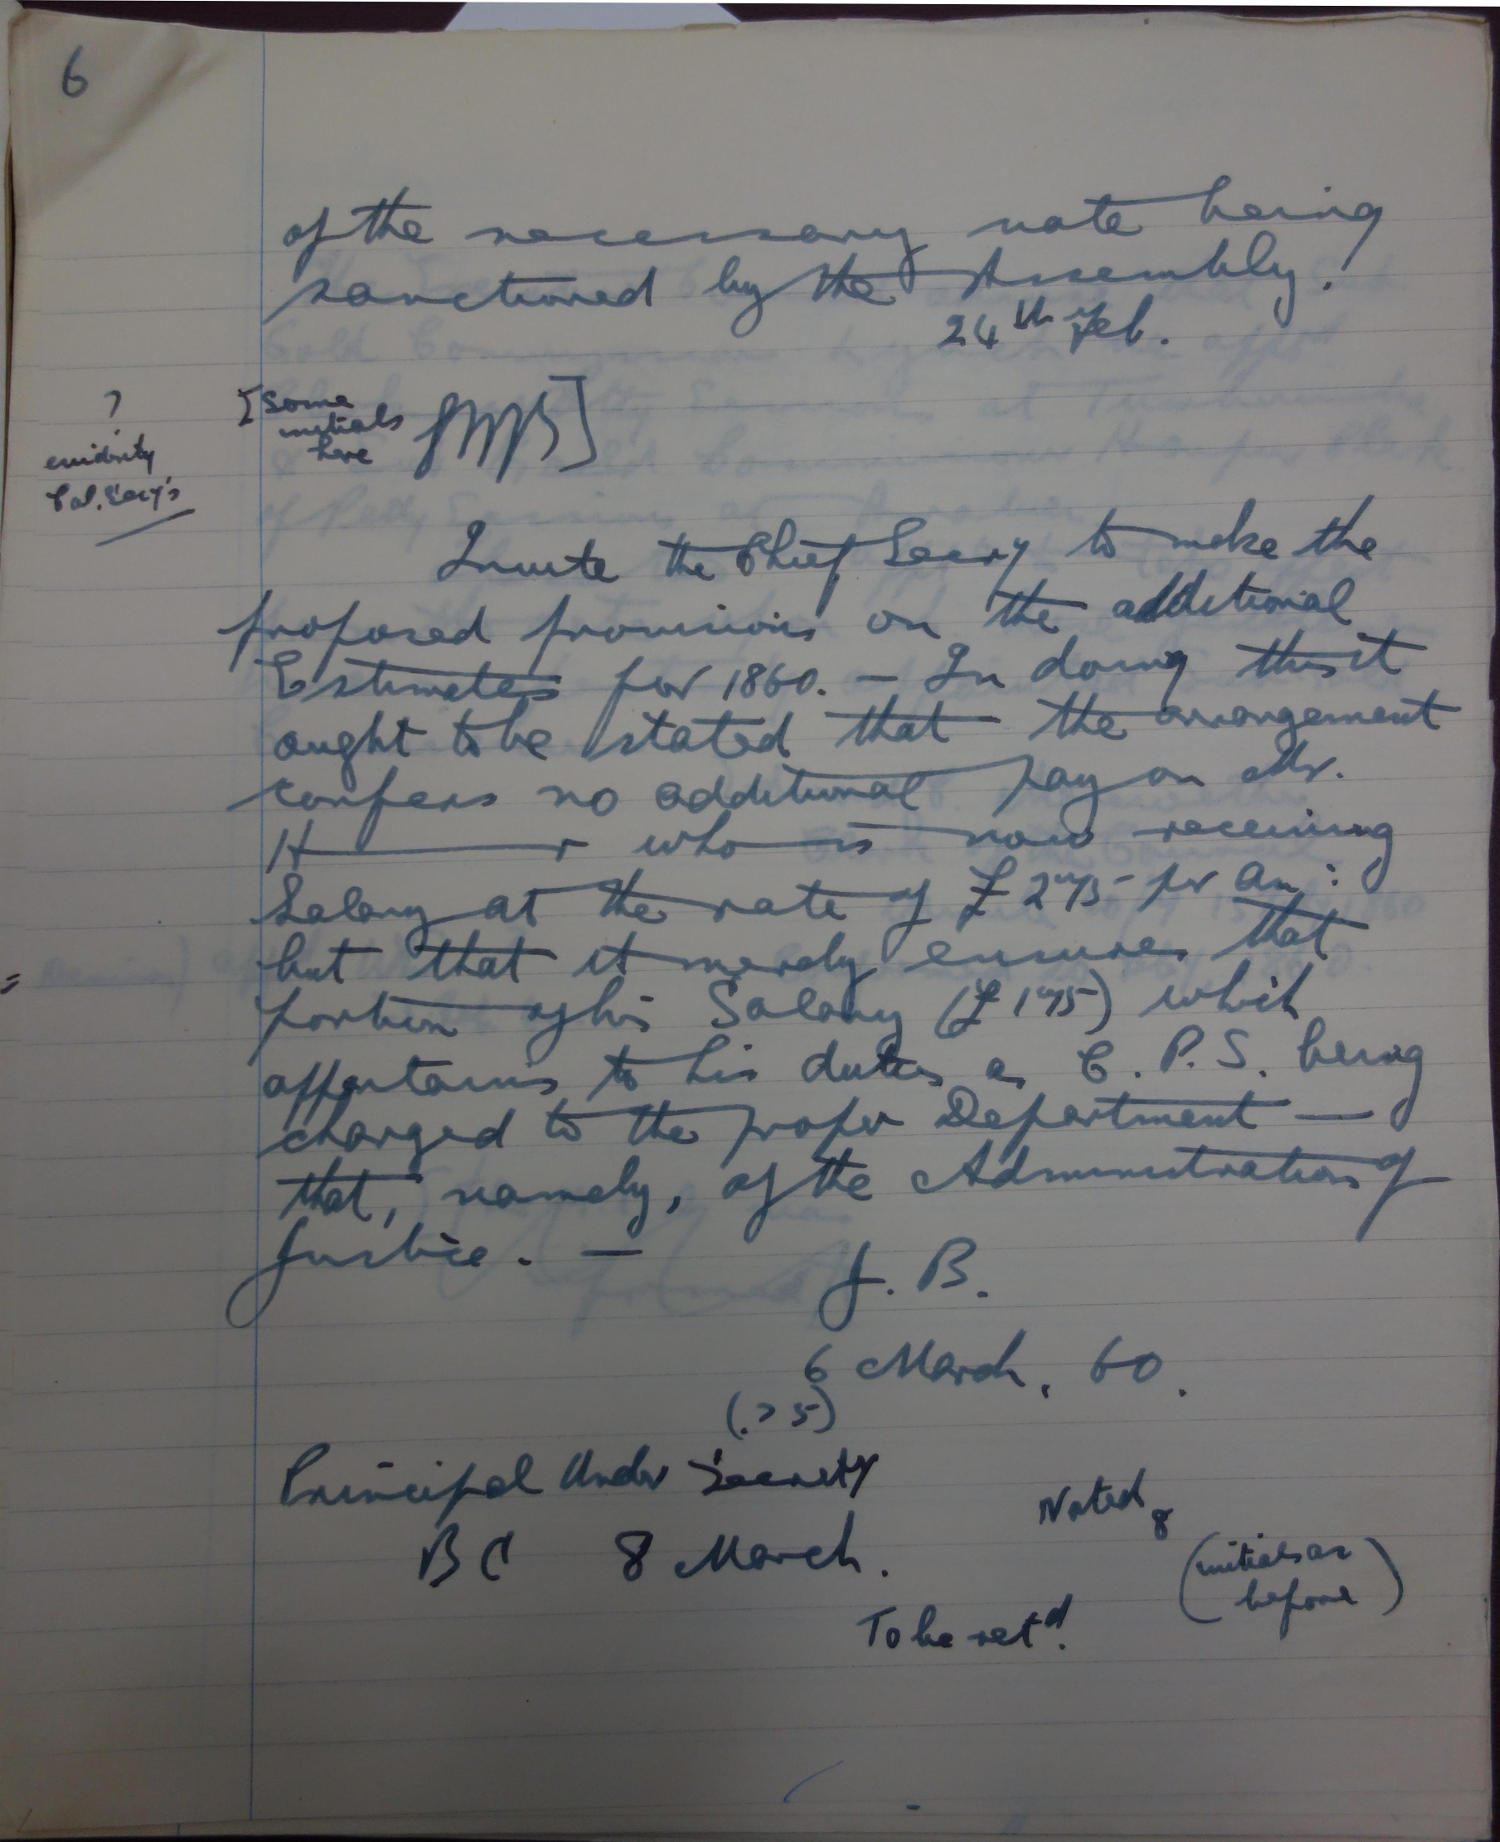 6
of the necessary vote being
sanctioned by the Assembly!
24th Feb.
[Some
initials
here ]
?
evidently
Col. Secy's
Invite the Chief Secry to make the
proposed provisions on the additional
Estimates for 1860. — In doing this it
ought to be stated that the arrangement
confers no additional pay on Mr.
H———r who is now receiving
Salary at the rate of £275 pr an:
but that it merely ensures that
portion of his Salary (£175) which
appertains to his duties as C.P.S. being
charged to the proper Department —
that, namely, of the Administration of
Justice. —
J. B.
6 March, 60.
(?5)
Principal Under Secrety
BC 8 March.
Noted
8
(initials as
before)
To be retd.